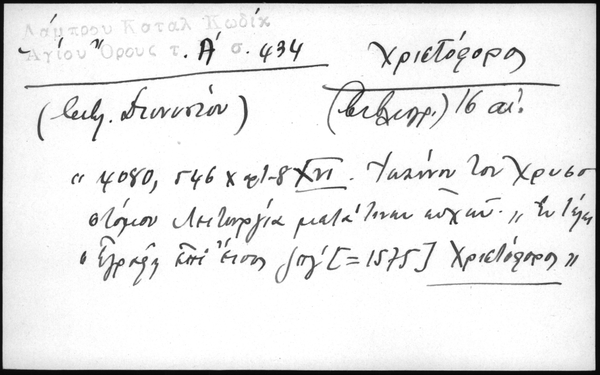 Λάμπρου Καταλ Κωδίκ
Αγίου Όρους τ. Α' σ. 434
Χριστόφορος
(                Διονυσίου)
(βιβλιογρ.) 16 αι.
" 4080, 546 χαρτ. 8 XVI.           του Χρυσο
στόμου Λειτουργία μετά τινων ευχών. " Εν τέλει
" Εγράφη επί έτους ζπγ' [= 1575] Χριστόφορος "